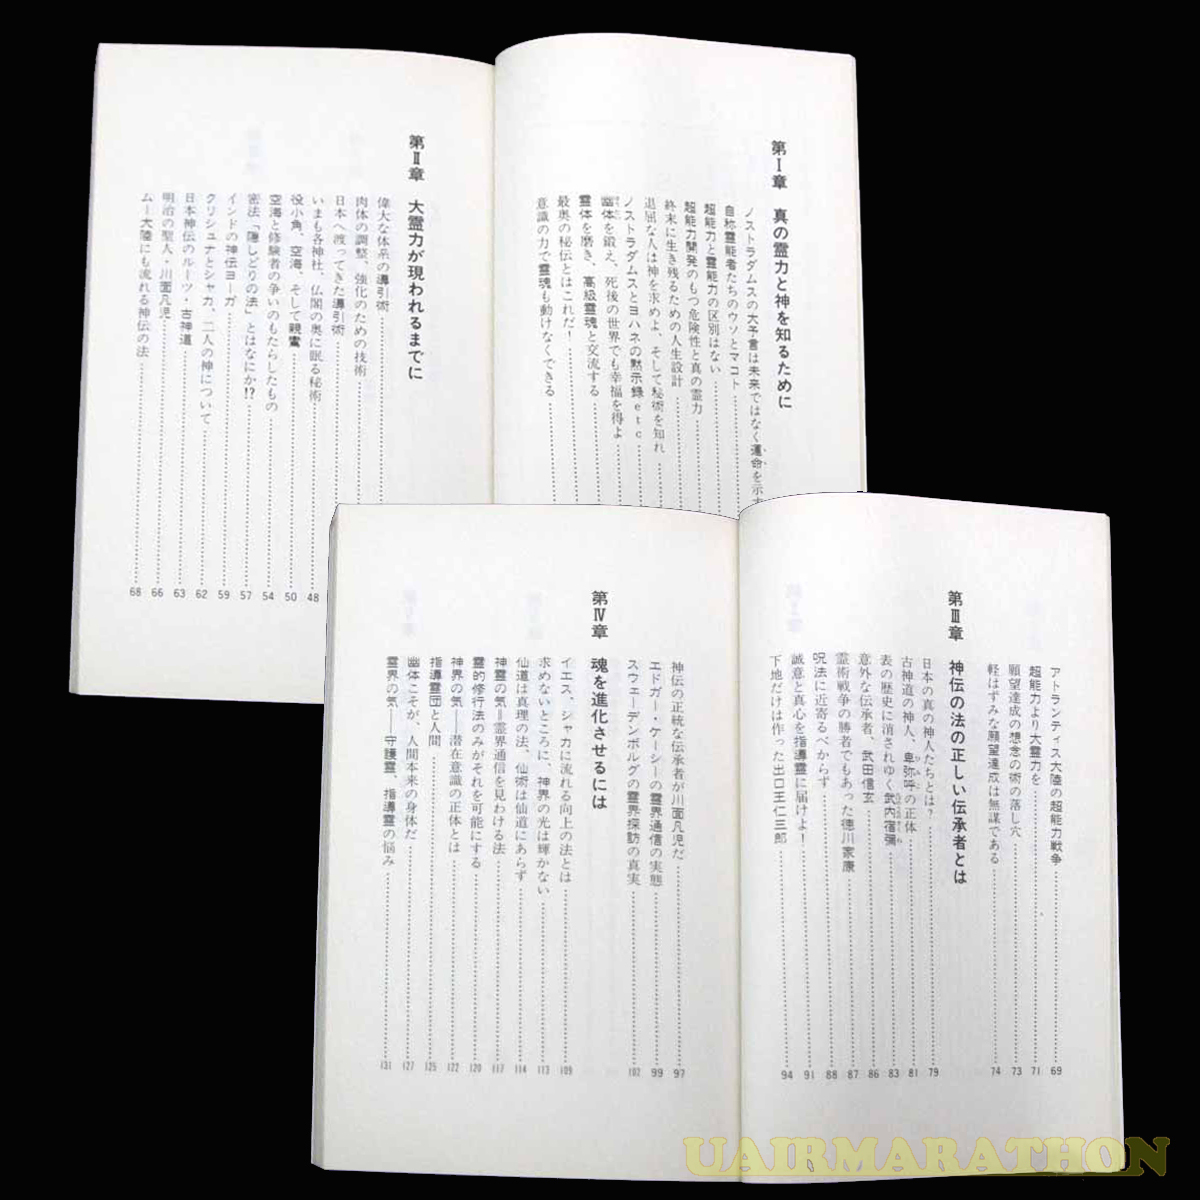 第Ⅰ章 真の霊力と神を知るために
ノストラダムスの大予言は未来ではなく運命を示す
自称霊能者たちのウソとマコト
超能力と霊能力の区別はない
超能力開発のもつ危険性と真の霊力
終末に生き残るための人生設計
退屈な人は神を求めよ、そして秘術を知れ
ノストラダムスとヨハネの黙示録etc
幽体を鍛え、死後の世界でも幸福を得よ
霊体を磨き、高級霊魂と交流する
最奥の秘伝とはこれだ!
意識の力で霊魂も動けなくできる
第Ⅱ章 大霊力が現われるまでに
偉大な体系の導引術
肉体の調整、強化のための技術
日本へ渡ってきた導引術
いまも各神社、仏閣の奥に眠る秘術 48
役小角、空海、そして親鸞 50
空海と修験者の争いのもたらしたもの 54
密法「隠しどりの法」とはなにか!? 57
インドの神伝ヨーガ 59
クリシュナとシャカ、二人の神について 62
日本神伝のルーツ・古神道 63
明治の聖人・川面凡児 66
ムー大陸にも流れる神伝の法 68
アトランティス大陸の超能力戦争 69
超能力より大霊力を 71
願望達成の想念の術の落し穴 73
軽はずみな願望達成は無謀である 74
第Ⅲ章 神伝の法の正しい伝承者とは
日本の真の神人たちとは? 79
古神道の神人、卑弥呼の正体 81
表の歴史に消されゆく武内宿彌 83
意外な伝承者、武田信玄 86
霊術戦争の勝者でもあった徳川家康 87
呪法に近寄るべからず 88
誠意と真心を指導霊に届けよ! 91
下地だけは作った出口王仁三郎 94
神伝の正統な伝承者が川面凡児だ 97
エドガー・ケーシーの霊界通信の実態 99
スウェーデンボルグの霊界探訪の真実 102
第Ⅳ章 魂を進化させるには
イエス、シャカに流れる向上の法とは 109
求めないところに、神界の光は輝かない 113
仙道は真理の法、仙術は仙道にあらず 114
神霊の気=霊界通信を見わける法 117
霊的修行法のみがそれを可能にする 120
神界の気——潜在意識の正体とは 122
指導霊団と人間 125
幽体こそが、人間本来の身体だ 127
霊界の気——守護霊、指導霊の悩み 131
UAIRMARATHON